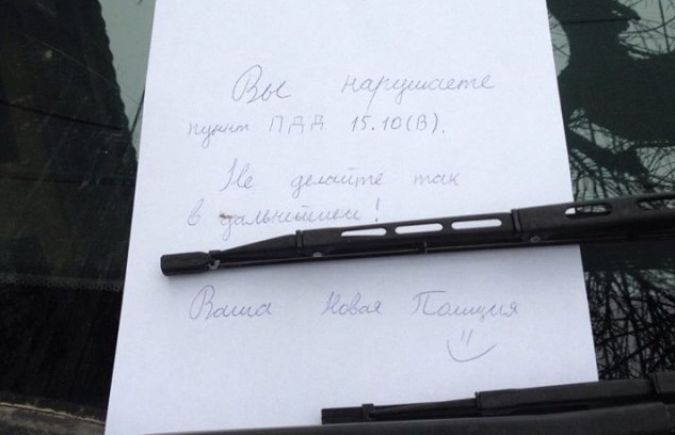 Вы нарушаете
пункт ПДД 15.10(В).
Не делайте так
в дальнейшем!
Ваша Новая Полиция